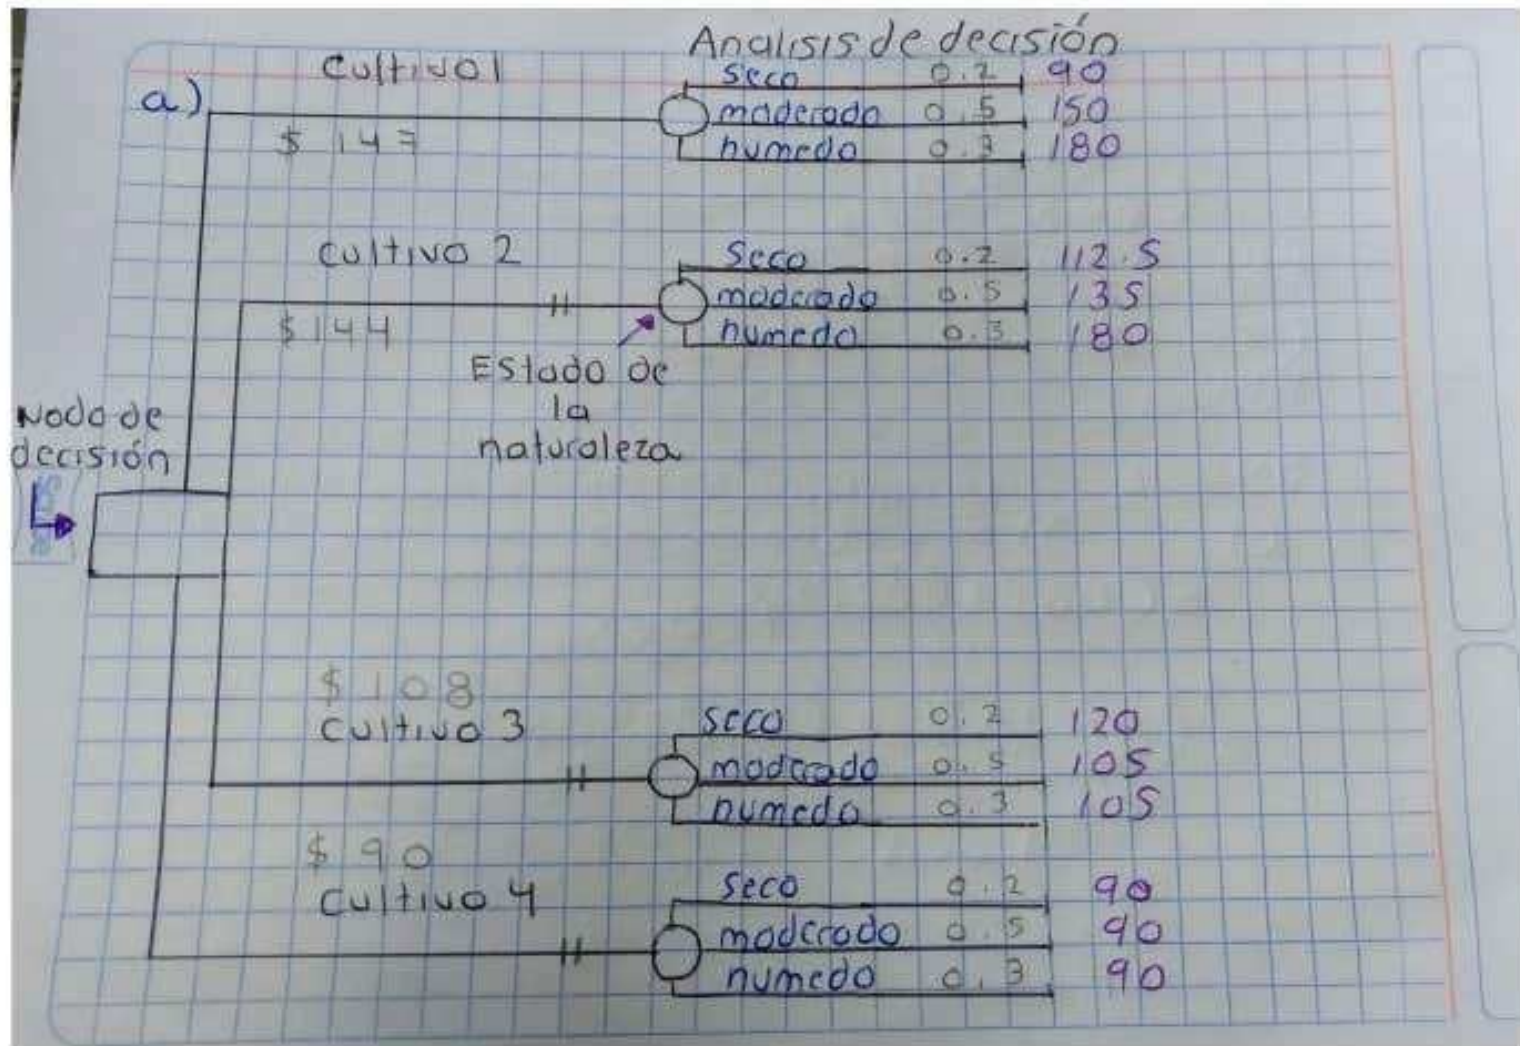 Analisis de decisión
a)
Cultivo 1
$ 147
seco 0.2 90
moderado 0.5 150
humedo 0.3 180
cultivo 2
$ 144
Seco 0.2 112.5
moderado 0.5 135
humedo 0.3 180
Estado de
la
naturaleza
Nodo de
decisión
$ 108
Cultivo 3
seco 0.2 120
moderado 0.5 105
humedo 0.3 105
$ 90
Cultivo 4
seco 0.2 90
moderado 0.5 90
humedo 0.3 90